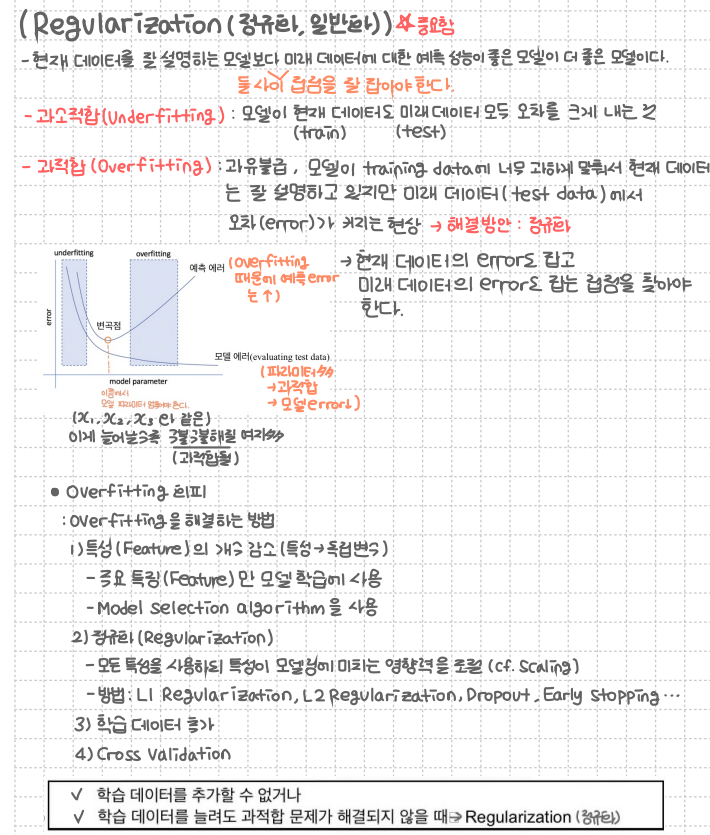 (Regularization (정규화, 일반화)) ☆중요함
- 현재 데이터를 잘 설명하는 모델보다 미래 데이터에 대한 예측 성능이 좋은 모델이 더 좋은 모델이다.
둘 사이 접점을 잘 잡아야 한다.
- 과소적합(Underfitting) : 모델이 현재 데이터도 미래 데이터 모두 오차를 크게 내는 것
(train) (test)
- 과적합 (Overfitting) : 과유불급, 모델이 training data에 너무 과하게 맞춰서 현재 데이터
는 잘 설명하고 있지만 미래 데이터(test data)에서
오차(error)가 커지는 현상 → 해결방안 : 정규화
underfitting overfitting
예측 에러 (Overfitting
때문에 예측error
는 ↑)
→ 현재 데이터의 error도 잡고
미래 데이터의 error도 잡는 접점을 찾아야
한다.
error
변곡점
모델 에러(evaluating test data)
model parameter
(파라미터 多多
→ 과적합
→ 모델error↓)
이쯤에서
모델 파라미터 멈춰야한다.
(x₁, x₂, x₃ 와 같은)
이게 늘어날수록 구불구불해질 여지多多
(과적합될)
● Overfitting 회피
: Overfitting을 해결하는 방법
1) 특성(Feature)의 개수 감소 (특성→독립변수)
- 주요 특징(Feature)만 모델 학습에 사용
- Model selection algorithm을 사용
2) 정규화 (Regularization)
- 모든 특성을 사용하되 특성이 모델링에 미치는 영향력을 조절 (cf. Scaling)
- 방법 : L1 Regularization, L2 Regularization, Dropout, Early stopping ⋯
3) 학습 데이터 추가
4) Cross Validation
✓ 학습 데이터를 추가할 수 없거나
✓ 학습 데이터를 늘려도 과적합 문제가 해결되지 않을 때 → Regularization (정규화)